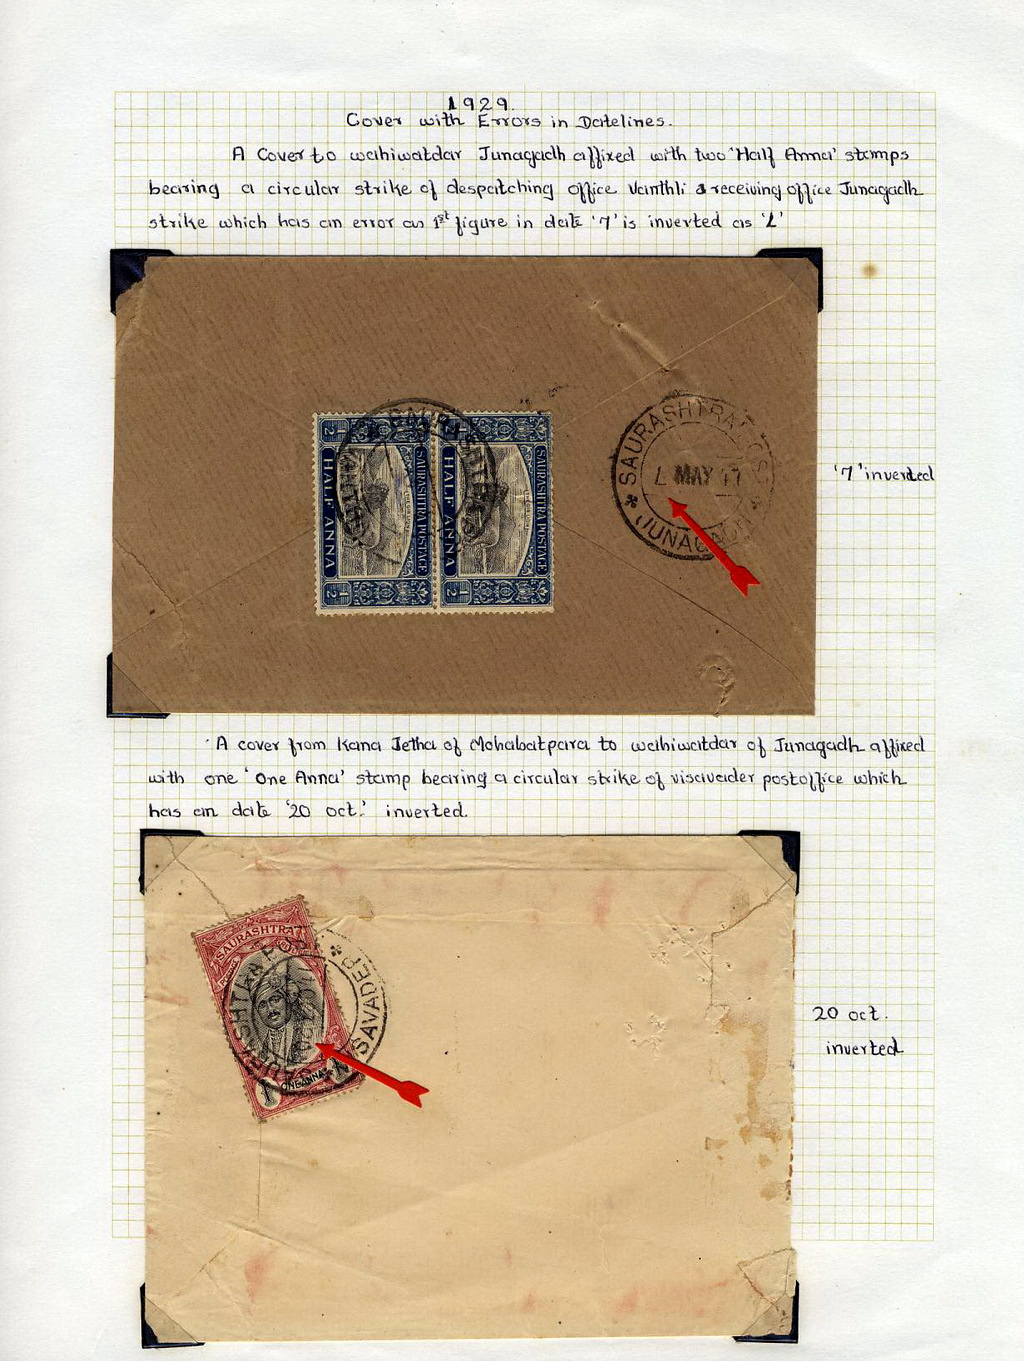 1929.
Cover with Errors in Datelines.
A Cover to wahiwatdar Junagadh affixed with two 'Half Anna' stamps
bearing a circular strike of despatching office Vanthli & receiving office Junagadh
strike which has an error as 1st figure in date '7' is inverted as 'L'
SAURASHTRA POSTAGE
HALF ANNA
½
½
SAURASHTRA POSTAGE
HALF ANNA
½
½
SAURASHTRA
VANTHLI
SAURASHTRA POST
L MAY 47
JUNAGADH
'7' inverted
A cover from Kana Jetha of Mohabatpara to wahiwatdar of Junagadh affixed
with one 'One Anna' stamp bearing a circular strike of visavader postoffice which
has an date '20 oct.' inverted.
SAURASHTRA
POSTAGE
1 ONE ANNA 1
SAURASHTRA POST
VISAVADER
20 oct.
inverted